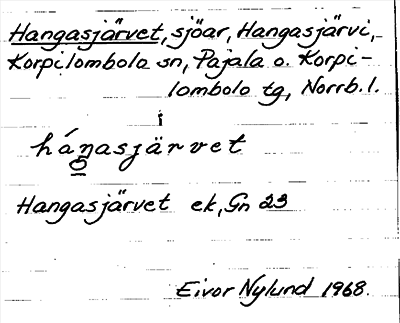 Hangasjärvet, sjöar, Hangasjärvi,
Korpilombolo sn, Pajala o. Korpi-
lombolo tg, Norrb. l.
i
háŋasjärvet
o
Hangasjärvet ek, Gn 23
Eivor Nylund 1968.